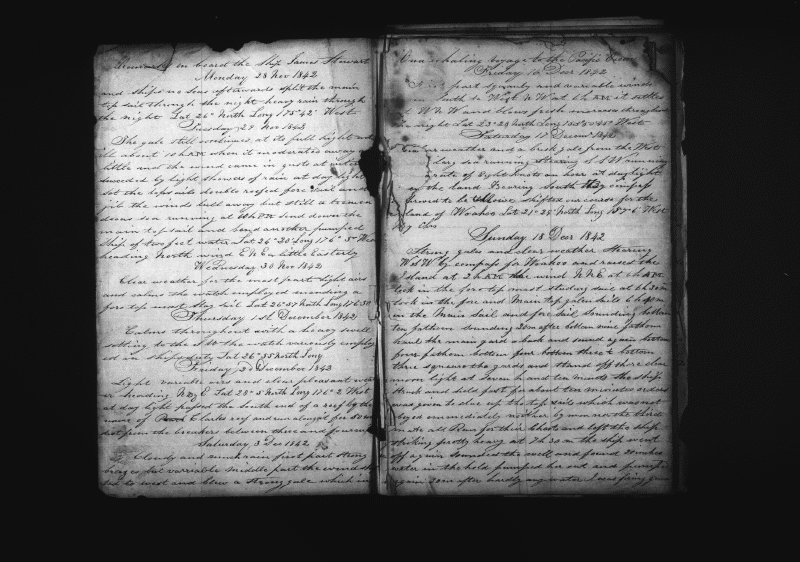 on board the Ship James Stewart
Monday 28 Nov 1842
and Ships no Seas afterwards split the main
top sail through the night heavy rain through
the night Lat 26° North Long 175°42" West
Tuesday 29 Nov 1842
The gale still continues at its full hight
till about 10 h AM when it moderated away a
little and the wind came in gusts at
by light showers of rain at day light
set the topsails double reefed fore sail and
jib the winds lull away but still a
sea running at send down the
main top sail and bend another pumped
ship of two feet water Lat 26°20 Long 176°5" West
heading North wind E N E a little Easterly
Wednesday 30 Nov 1842
Clear weather for the most part light airs
and calms the watch employed mending a
fore top mast stay sail Lat 26°57 North Long 176
Thursday 1st December 1842
Calms throughout with a heavy swell
setting to the the watch variously employ
ed in ships duty Lat 26°35 North Long
Friday 2d December 1842
Light variable airs and clear pleasant wea
er heading N by E Lat 28°5 North Long 176°2 West
at day light passed the South end of a reef by the
name of Clarks reef and run along it for 50
dist from the breakers between three and four
Saturday 3 Dec 1842
Cloudy and much rain first part strong
but variable middle part the wind
to west and blew a strong gale which
On a whaling voyage to the Pacific Ocean
Friday 16 Decr 1842
First part squaly and variable winds
South to West N W at 6 h AM it settles
W N W and blows fresh increase throughout
the night Lat 23°28 North Long 158°45" West
Saturday 17 Decem 1842
weather and a brisk gale from the West
large sea running Stearing
rate of Eight knots an hour at day light
the land Bearing South by compass
proved to be shifted our course for the
land of Woahoo Lat 21°24" North Long 157°6" West
by Chro
Sunday 18 Decr 1842
Strong gale and clear weather Stearing
W by compass for Woahoo and raised the
Island at 2 h AM the wind N N E at
took in the fore top mast studing sail at 6 h 30 m
took in the fore and Main top galen sails 6 h 40 m
in the Main Sail and fore sail sounding bottom
ten fathom sounding 20 m after bottom nine fathom
haul the main yard aback and sound again bottom
four fathom bottom four bottom three & bottom
three square the yards and stand off shore clear
moon light at Seven h and ten minuts the ship
Struck and held fast for about ten minutes orders
was given to clue up the top sails which was not
obeyed immediately neither by man nor the third
mate all Run for their Chests and left the Ship
striking pretty heavy at 7 h 30 m the ship went
off again sounded the well and found 20 inches
water in the hold pumped her out and pumped
again 20 m after hardly any water I was firing guns